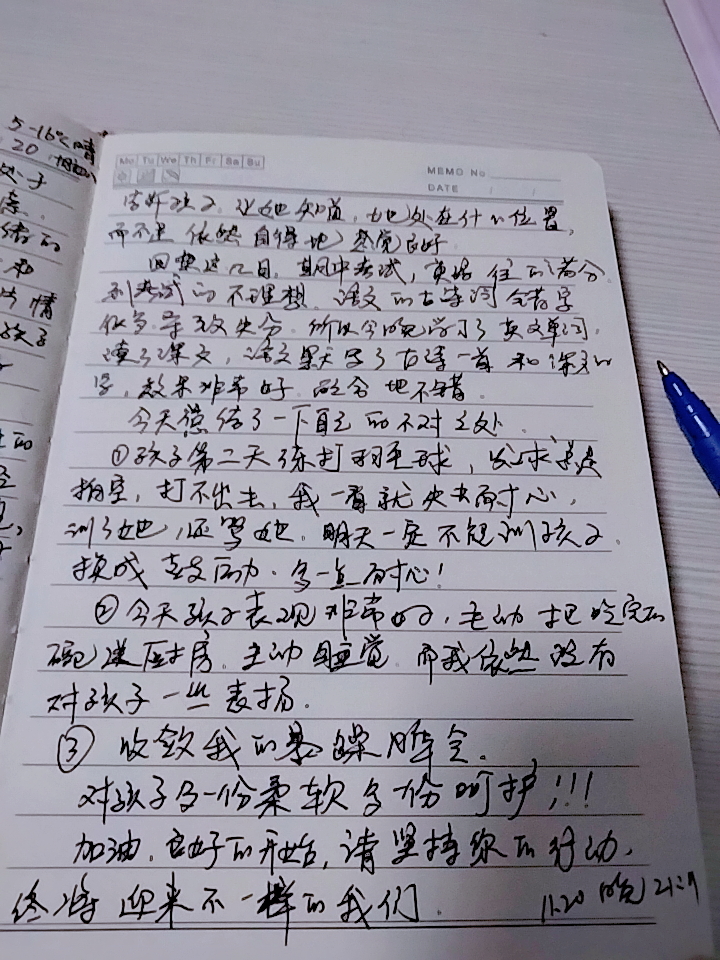 5-16℃晴
20
Mo Tu We Th Fr Sa Su
MEMO No.
DATE / /
告诉孩子,让她知道,她处在什么位置,
而不是依然自得地感觉良好
回想这几日,期中考试,英语往的满分
到考试的不理想,语文的古诗词会错字
很多导致失分.所以今晚学习了英文单词,
读了课文,语文默写了古诗一首和课文的
字,效果非常好.配合地不错.
今天总结了一下自己的不对之处.
①孩子第二天练打羽毛球,发球总是
拍空,打不出去,我一看就失去耐心,
训了她,还骂她.明天一定不能训孩子.
换成鼓励.多一点耐心!
②今天孩子表现非常好,主动把吃完的
碗送厨房.主动睡觉.而我依然没有
对孩子一些表扬.
③收敛我的暴躁脾气.
对孩子多一份柔软多份呵护!!!
加油.良好的开始,请坚持你的行动,
终将迎来不一样的我们.
11.20 晚